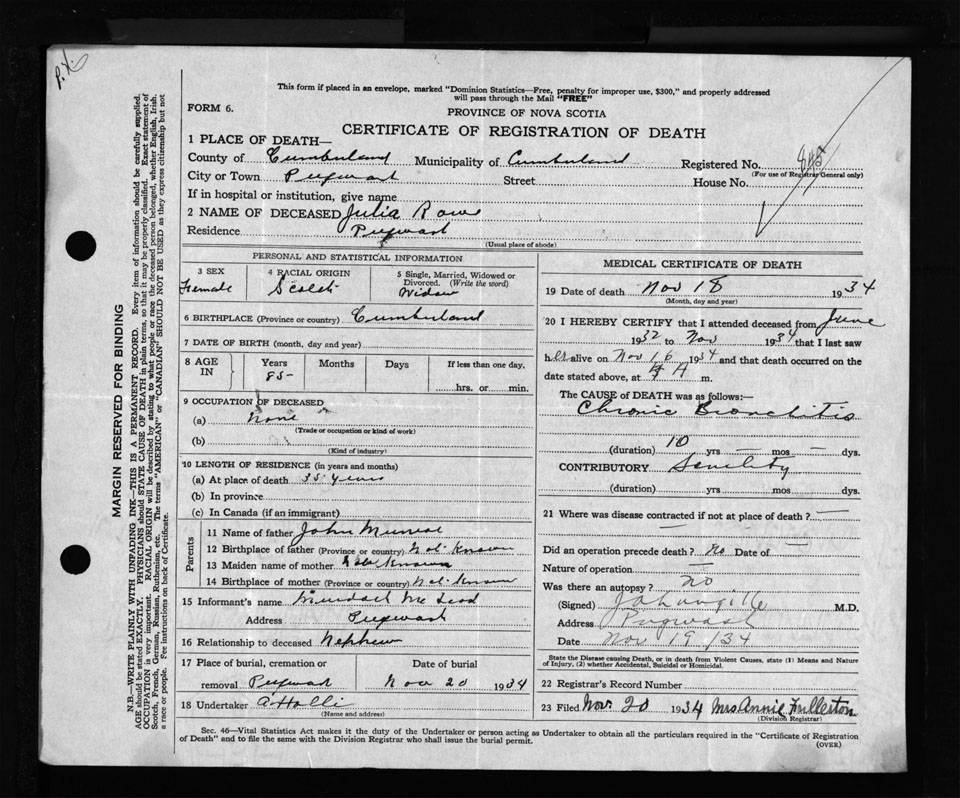 P.X.
This form if placed in an envelope, marked "Dominion Statistics—Free, penalty for improper use, $300," and properly addressed
will pass through the Mail "FREE"
FORM 6.
PROVINCE OF NOVA SCOTIA
CERTIFICATE OF REGISTRATION OF DEATH
1 PLACE OF DEATH—
County of Cumberland Municipality of Cumberland Registered No. 845
(For use of Registrar General only)
City or Town Pugwash Street House No.
If in hospital or institution, give name
2 NAME OF DECEASED Julia Rowe
Residence Pugwash
(Usual place of abode)
MARGIN RESERVED FOR BINDING
N.B.—WRITE PLAINLY WITH UNFADING INK—THIS IS A PERMANENT RECORD. Every item of information should be carefully supplied.
AGE should be stated EXACTLY. PHYSICIANS should STATE CAUSE OF DEATH in plain terms, so that it may be properly classified. Exact statement of
OCCUPATION is very important. RACIAL ORIGIN will be described by stating to what people or race the deceased person belonged, whether English, Irish,
Scotch, French, German, Russian, Ruthenian, etc. The terms "AMERICAN" or "CANADIAN" SHOULD NOT BE USED as they express citizenship but not
a race or people. Fee instructions on back of Certificate.
PERSONAL AND STATISTICAL INFORMATION
3 SEX
Female
4 RACIAL ORIGIN
Scotch
5 Single, Married, Widowed or
Divorced. (Write the word)
Widow
6 BIRTHPLACE (Province or country) Cumberland
7 DATE OF BIRTH (month, day and year)
8 AGE IN
Years Months Days If less than one day,
85
hrs. or min.
9 OCCUPATION OF DECEASED
(a) None
(Trade or occupation or kind of work)
(b)
(Kind of industry)
10 LENGTH OF RESIDENCE (in years and months)
(a) At place of death 35 years
(b) In province
(c) In Canada (if an immigrant)
Parents
11 Name of father John Munroe
12 Birthplace of father (Province or country) Not Known
13 Maiden name of mother Not Known
14 Birthplace of mother (Province or country) Not Known
15 Informant's name Murdoch McLeod
Address Pugwash
16 Relationship to deceased Nephew
17 Place of burial, cremation or Date of burial
removal Pugwash Nov 20 1934
18 Undertaker
(Name and address)
MEDICAL CERTIFICATE OF DEATH
19 Date of death Nov 18 1934
(Month, day and year)
20 I HEREBY CERTIFY that I attended deceased from June
1932 to Nov 1934 that I last saw
her alive on Nov 16 1934 and that death occurred on the
date stated above, at A m.
The CAUSE OF DEATH was as follows:
Chronic Bronchitis
(duration) 10 yrs — mos — dys.
CONTRIBUTORY Senility
(duration) yrs mos dys.
21 Where was disease contracted if not at place of death? —
—
Did an operation precede death? No Date of —
Nature of operation —
Was there an autopsy? No
(Signed) M.D.
Address Pugwash
Date Nov 19/34
State the Disease causing Death, or in death from Violent Causes, state (1) Means and Nature
of Injury, (2) whether Accidental, Suicidal or Homicidal.
22 Registrar's Record Number
23 Filed Nov 20 1934 Mrs Annie Fullerton
(Division Registrar)
Sec. 46—Vital Statistics Act makes it the duty of the Undertaker or person acting as Undertaker to obtain all the particulars required in the "Certificate of Registration
of Death" and to file the same with the Division Registrar who shall issue the burial permit.
(OVER)